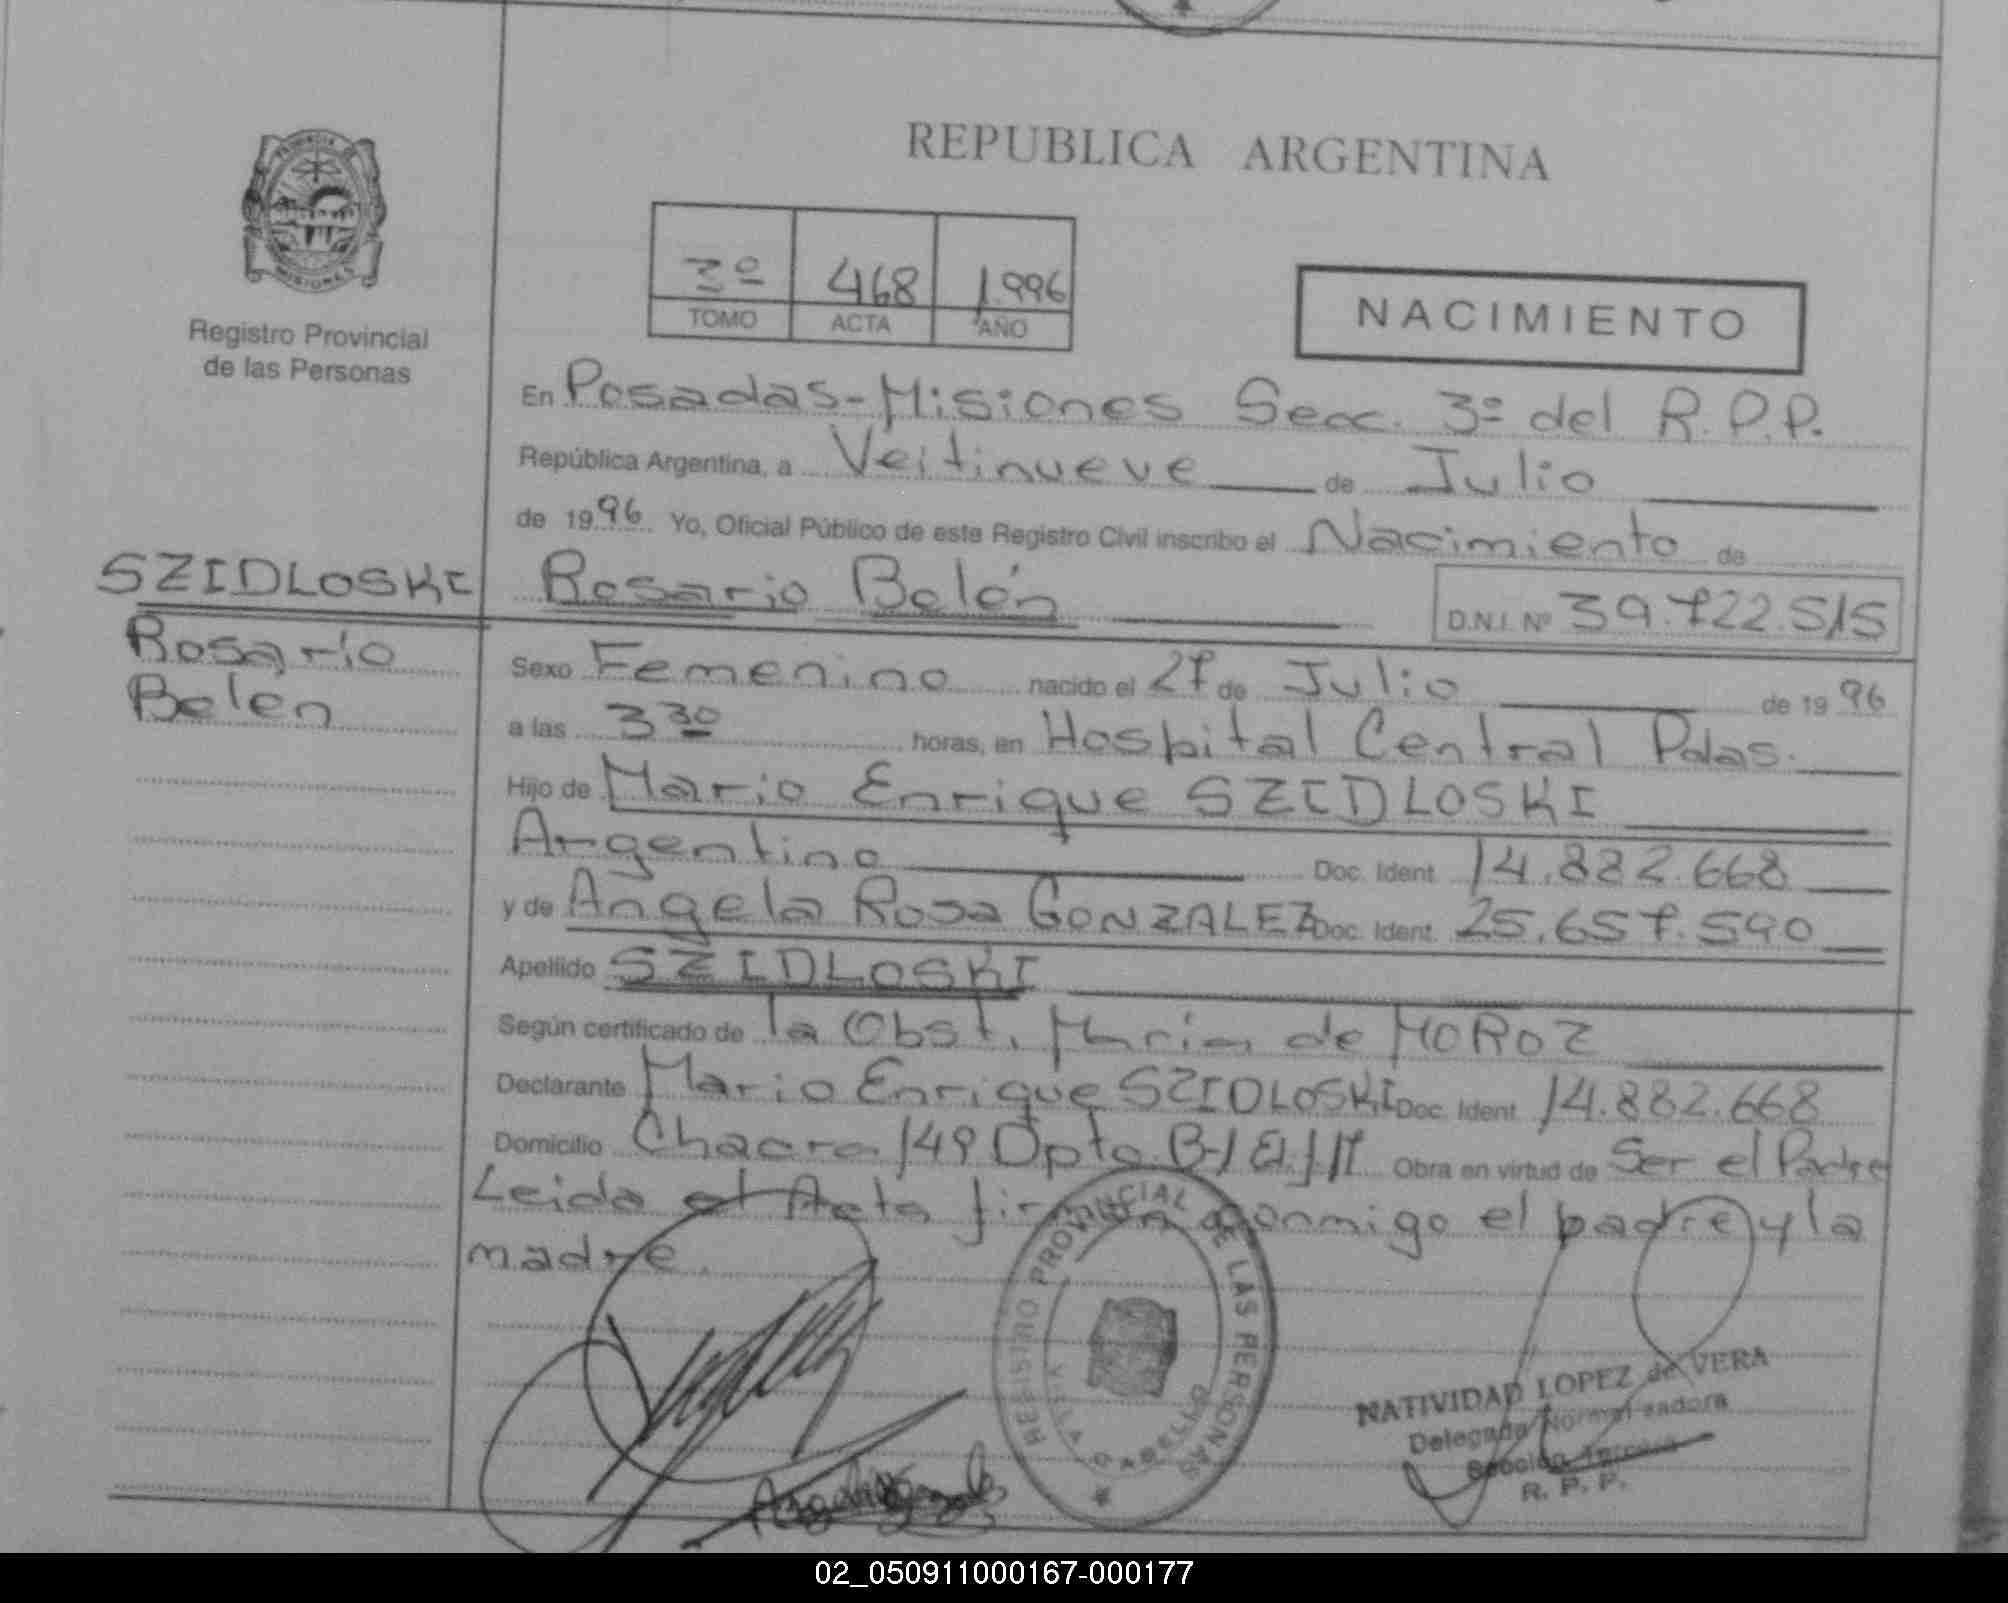 REPUBLICA ARGENTINA
PROVINCIA DE
MISIONES
Registro Provincial
de las Personas
3º 468 1.996
TOMO ACTA AÑO
NACIMIENTO
En Posadas-Misiones Secc. 3º del R.P.P.
República Argentina, a Veitinueve de Julio
de 1996 Yo, Oficial Público de este Registro Civil inscribo el Nacimiento de
SZIDLOSKI
Rosario
Belen
Rosario Belén D.N.I. Nº 39.722.515
Sexo Femenino nacido el 27 de Julio de 1996
a las 3 30 horas, en Hospital Central Pdas.
Hijo de Mario Enrique SZIDLOSKI
Argentino Doc. Ident. 14.882.668
y de Angela Rosa GONZALEZ Doc. Ident. 25.657.590
Apellido SZIDLOSKI
Según certificado de la Obst. María de MOROZ
Declarante Mario Enrique SZIDLOSKI Doc. Ident. 14.882.668
Domicilio Chacra 149 Dpto Obra en virtud de Ser el Padre
Leida el Acta firman conmigo el padre y la
madre.
REGISTRO PROVINCIAL DE LAS PERSONAS
VILLA CABELLO
NATIVIDAD LOPEZ de VERA
Delegada Normalizadora
Sección Tercera
R. P. P.
02_050911000167-000177